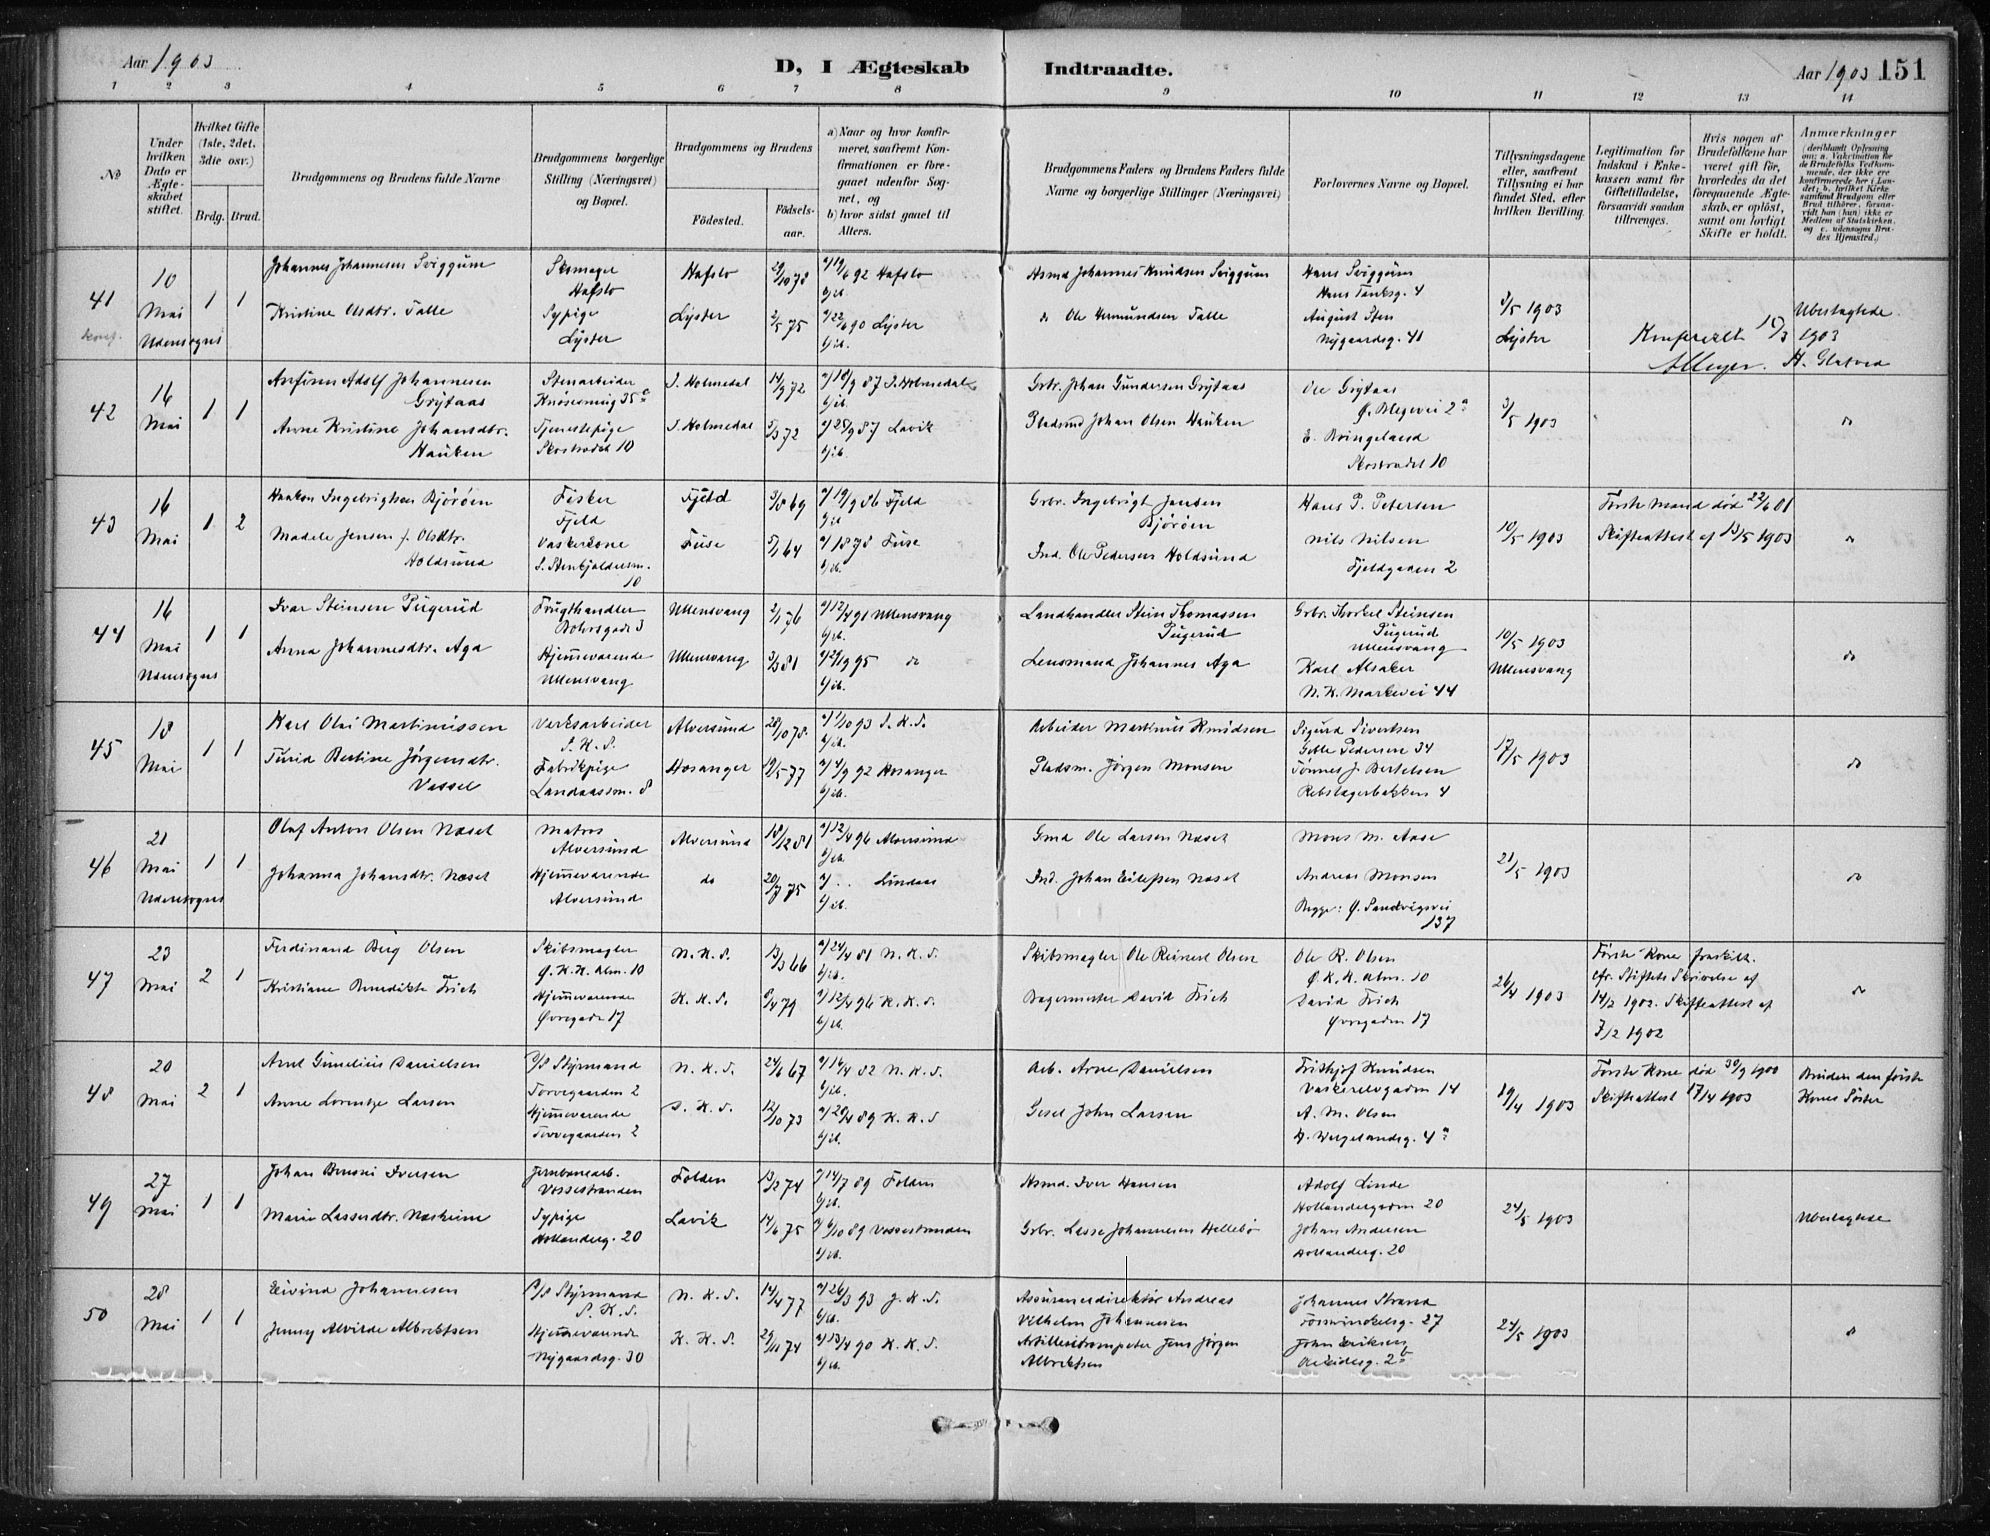 Aar 1903
D, I Ægteskab Indtraadte.
Aar 1903 151
1 2 3 4 5 6 7 8 9 10 11 12 13 14
No
Under hvilken Dato er Ægteskabet stiftet.
Hvilket Gifte (1ste, 2det, 3die osv.)
Brdg. Brud.
Brudgommens og Brudens fulde Navne
Brudgommens borgerlige Stilling (Næringsvei) og Bopæl.
Brudgommens og Brudens
Fødested.
Fødselsaar.
a) Naar og hvor konfirmeret, saafremt Konfirmationen er foregaaet udenfor Sognet, og
b) hvor sidst gaaet til Alters.
Brudgommens Faders og Brudens Faders fulde Navne og borgerlige Stillinger (Næringsvei)
Forlovernes Navne og Bopæl.
Tillysningsdagene eller, saafremt Tillysning ei har fundet Sted, efter hvilken Bevilling.
Legitimation for Indskud i Enkekassen samt for Giftetilladelse, forsaavidt saadan tiltrænges.
Hvis nogen af Brudefolkene har været gift før, hvorledes da det foregaaende Ægteskab er opløst, samt om lovligt Skifte er holdt.
Anmærkninger (deriblandt Oplysning om: a. Vakcination for de Brudefolks Vedkommende, der ikke ere konfirmerede her i Landet; b. hvilket Kirkesamfund Brudgom eller Brud tilhører, forsaavidt han (hun) ikke er Medlem af Statskirken, og c. udensogns Brudes Hjemsted.)
41
10 Mai Udensogns
1 1
Johannes Johannesen Sviggum
Kristine Olsdtr. Talle
Skomager
Hafslo
Sypige
Lyster
Hafslo
Lyster
29/10 78
2/5 75
a) 19/6 92 Hafslo
b) ib.
a) 22/6 90 Lyster
b) ib.
Asmd Johannes Knudsen Sviggum
do Ole Hermundsen Talle
Hans Sviggum
Hans Tanksg. 4
August Sten
Nygaardsg. 41
3/5 1903
Lyster
Ubeslagtede
Konfereret 10/3 1903
H. Glatved
42
16 Mai
1 1
Anfinn Adolf Johannesen
Grytaas
Anne Kristine Johansdtr.
Hauken
Stenarbeider
Knøsesmug 35a
Tjenestepige
Skostredet 10
I. Holmedal
I. Holmedal
14/9 72
5/3 72
a) 18/9 87 I. Holmedal
b) ib.
a) 25/9 87 Lavik
b) ib.
Grbr. Johan Gundersen Grytaas
Pladsmd Johan Olsen Hauken
Ole Grytaas
Ø. Blegevei 2a
E. Bringeland
Skostredet 10
3/5 1903
do
43
16 Mai
1 2
Haakon Ingebrigtsen Bjørøen
Madele Jensen f. Olsdtr.
Holdsund
Fisker
Fjeld
Vaskerkone
S. Stenkjeldersm. 10
Fjeld
Fuse
3/8 69
5/1 64
a) 19/9 86 Fjeld
b) ib
a) 1878 Fuse
b) ib.
Grbr. Ingebrigt Jensen
Bjørøen
Ind. Ole Pedersen Holdsund
Hans P. Petersen
Nils Nilsen
Fjeldgaden 2
10/5 1903
Første Mand død 22/6 01
Skifteattest af 12/5 1903
do
44
16 Mai Udensogns
1 1
Ivar Steinsen Pugerud
Anna Johannesdtr. Aga
Frugthandler
Bohrsgade 3
Hjemmeværende
Ullensvang
Ullensvang
Ullensvang
2/1 76
3/3 81
a) 12/4 91 Ullensvang
b) ib.
95 do
b) ib.
Landhandler Stein Thomassen
Pugerud
Lensmand Johannes Aga
Grbr. Thorkel Steinsen
Pugerud
Ullensvang
Karl Alsaker
N. K. Markevei 44
10/5 1903
Ullensvang
do
45
18 Mai
1 1
Karl Olai Martinussen
Turid Bertine Jørgensdtr.
Vassel
Verksarbeider
S. K. S.
Fabrikpige
Landaassm. 8
Alversund
Hosanger
28/10 78
19/5 77
a) 1/10 93 S. K. S.
b) ib.
a) 4/9 92 Hosanger
b) ib.
Arbeider Martinus Knudsen
Pladsm. Jørgen Monsen
Sigurd Sivertsen
Gabl. Pedersen 34
Tønnes J. Bertelsen
Rebslagerbakken 4
17/5 1903
do
46
21 Mai Udensogns
1 1
Olaf Anton Olsen Næset
Johanna Johansdtr. Næset
Matros
Alversund
Hjemmeværende
Alversund
Alversund
do
18/12 81
20/7 75
a) 12/4 96 Alversund
b) ib.
a) . . Lindaas
b) ib.
Gmd Ole Larsen Næset
Ind. Johan Eilefsen Næset
Mons M. Aase
Andreas Monsen
Begge: Ø. Sandvigsvei
137
21/5 1903
do
47
23 Mai
2 1
Ferdinand Berg Olsen
Kristiane Benedikte Frich
Skibsmægler
Ø. K. K. alm. 10
Hjemmeværende
Øvregaden 17
N. K. S.
K. K. S.
13/3 66
9/4 79
a) 24/4 81 N. K. S.
b) ib.
a) 12/4 96 K. K. S.
b) ib.
Skibsmægler Ole Reinert Olsen
Bagermester David Frich
Ole R. Olsen
Ø. K. K. alm. 10
David Frich
Øvregaden 17
26/4 1903
Første Kone fraskilt.
cfr. Stiftets Skrivelse af
14/2 1902. Skifteattest af
7/2 1902
do
48
20 Mai
2 1
Arnt Gunelius Danielsen
Anne Lorentze Larsen
D/S Styrmand
Torvegaarden 2
Hjemmeværende
Torvegaarden 2
N. K. S.
D. K. S.
24/6 67
12/10 73
a) 16/4 82 N. K. S.
b) ib.
a) 28/4 89 K. K. S
b) ib.
Arb. Arne Danielsen
Gesel John Larsen
Frithjof Knudsen
Vaskerelvgaden 14
A. M. Olsen
H. Wergelandsg. 4a
19/4 1903
Første Kone død 30/9 1900
Skifteattest 17/4 1903
Bruden den første
Kones Søster
49
27 Mai
1 1
Johan Iversen
Marie Lassesdtr. Næsheim
Jernbanearb.
Vossestranden
Sypige
Hollenderg. 20
Folden
Lavik
13/12 74
14/6 75
a) 14/7 89 Folden
b) ib.
a) 6/10 89 Vossestranden
b) ib.
Asmd. Iver Hansen
Grbr. Lasse Johannesen Hellebø
Adolf Linde
Hollandergaden 20
Johan Andersen
Hollenderg. 20
24/5 1903
Ubeslagtede
50
28 Mai
1 1
Eivind Johannesen
Jenny Alvilde Albrektsen
D/S Styrmand
S. K. S.
Hjemmeværende
Nygaardsg. 30
N. K. S.
K. K. S.
14/4 77
29/11 74
a) 26/3 93 J. K. S.
b) ib.
a) 13/4 90 K. K. S.
b) ib.
Assurancedirektør Andreas
Vilhelm Johannesen
Artilleritrompeter Jens Jørgen
Albrektsen
Johannes Strand
Fosswinkelsg. 27
John Eriksen
24/5 1903
do